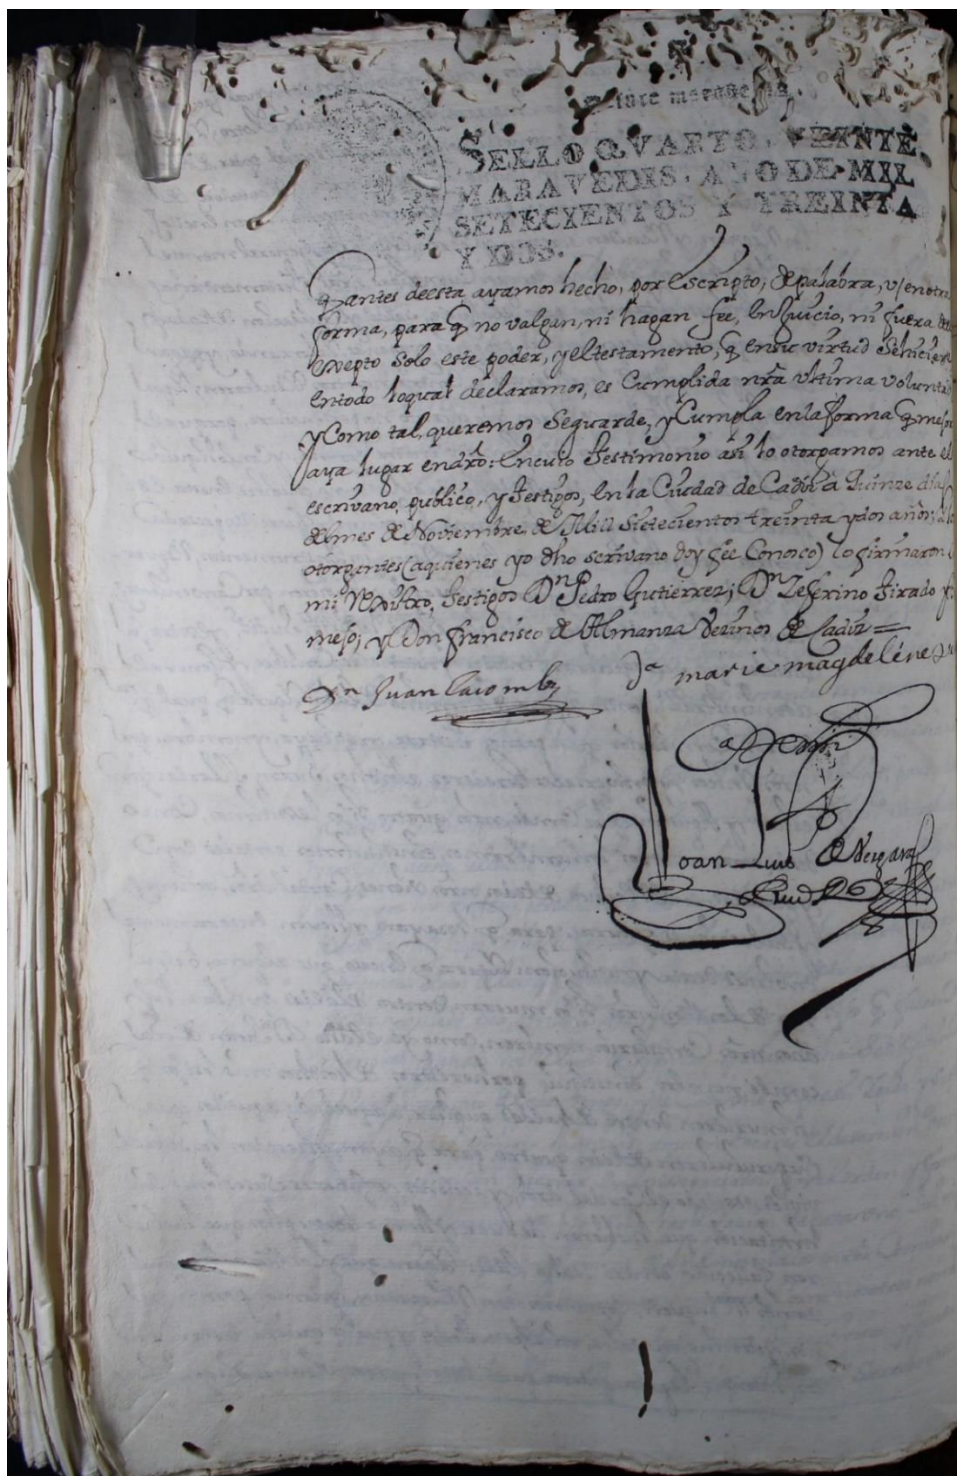 SELLO QVARTO, VEINTE
MARAVEDIS, AÑO DE MIL
SETECIENTOS Y TREINTA
Y DOS.
q̃ antes de esta ayamos hecho, por Escripto, de palabra, v, en otra
forma, para q̃ no valgan, ni hagan fee, En Juicio, ni fuera
exepto solo este poder, y el testamento, q̃ en su virtud Se hiciere
en todo lo qual declaramos, es Cumplida nr̃a vltima volunta
y Como tal, queremos Se guarde, y Cumpla en la forma q̃ mejor
aya lugar en dr̃o: En cuio testimonio asi lo otorgamos ante el
escrivano publico, y testigos, En la Ciudad de Cadiz a quinze dias
del mes de Noviembre de Mill Setecientos treinta y dos años;
otorgantes (a quienes yo dho escrivano doy fee Conosco) lo firmaron
mi Rexistro, testigos Dn Pedro Gutierrez; Dn Zeferino Tirado
y Don Francisco de Almanza Vezinos de Cadiz =
Dn Juan Lacombe
Da marie magdeleine
Joan Luis de Vergara